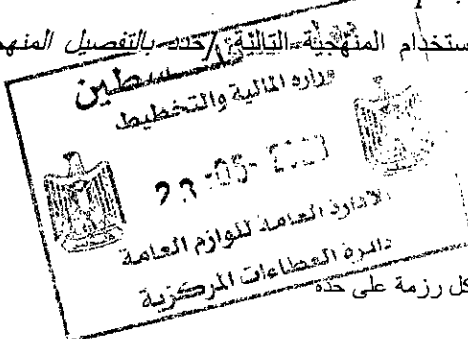 ستخدام المنهجية التالية [حدد بالتفصيل المنهج
فلسطين
وزارة المالية والتخطيط
23-05-
الادارة العامة للوازم العامة
دائرة العطاءات المركزية
كل رزمة على حدة